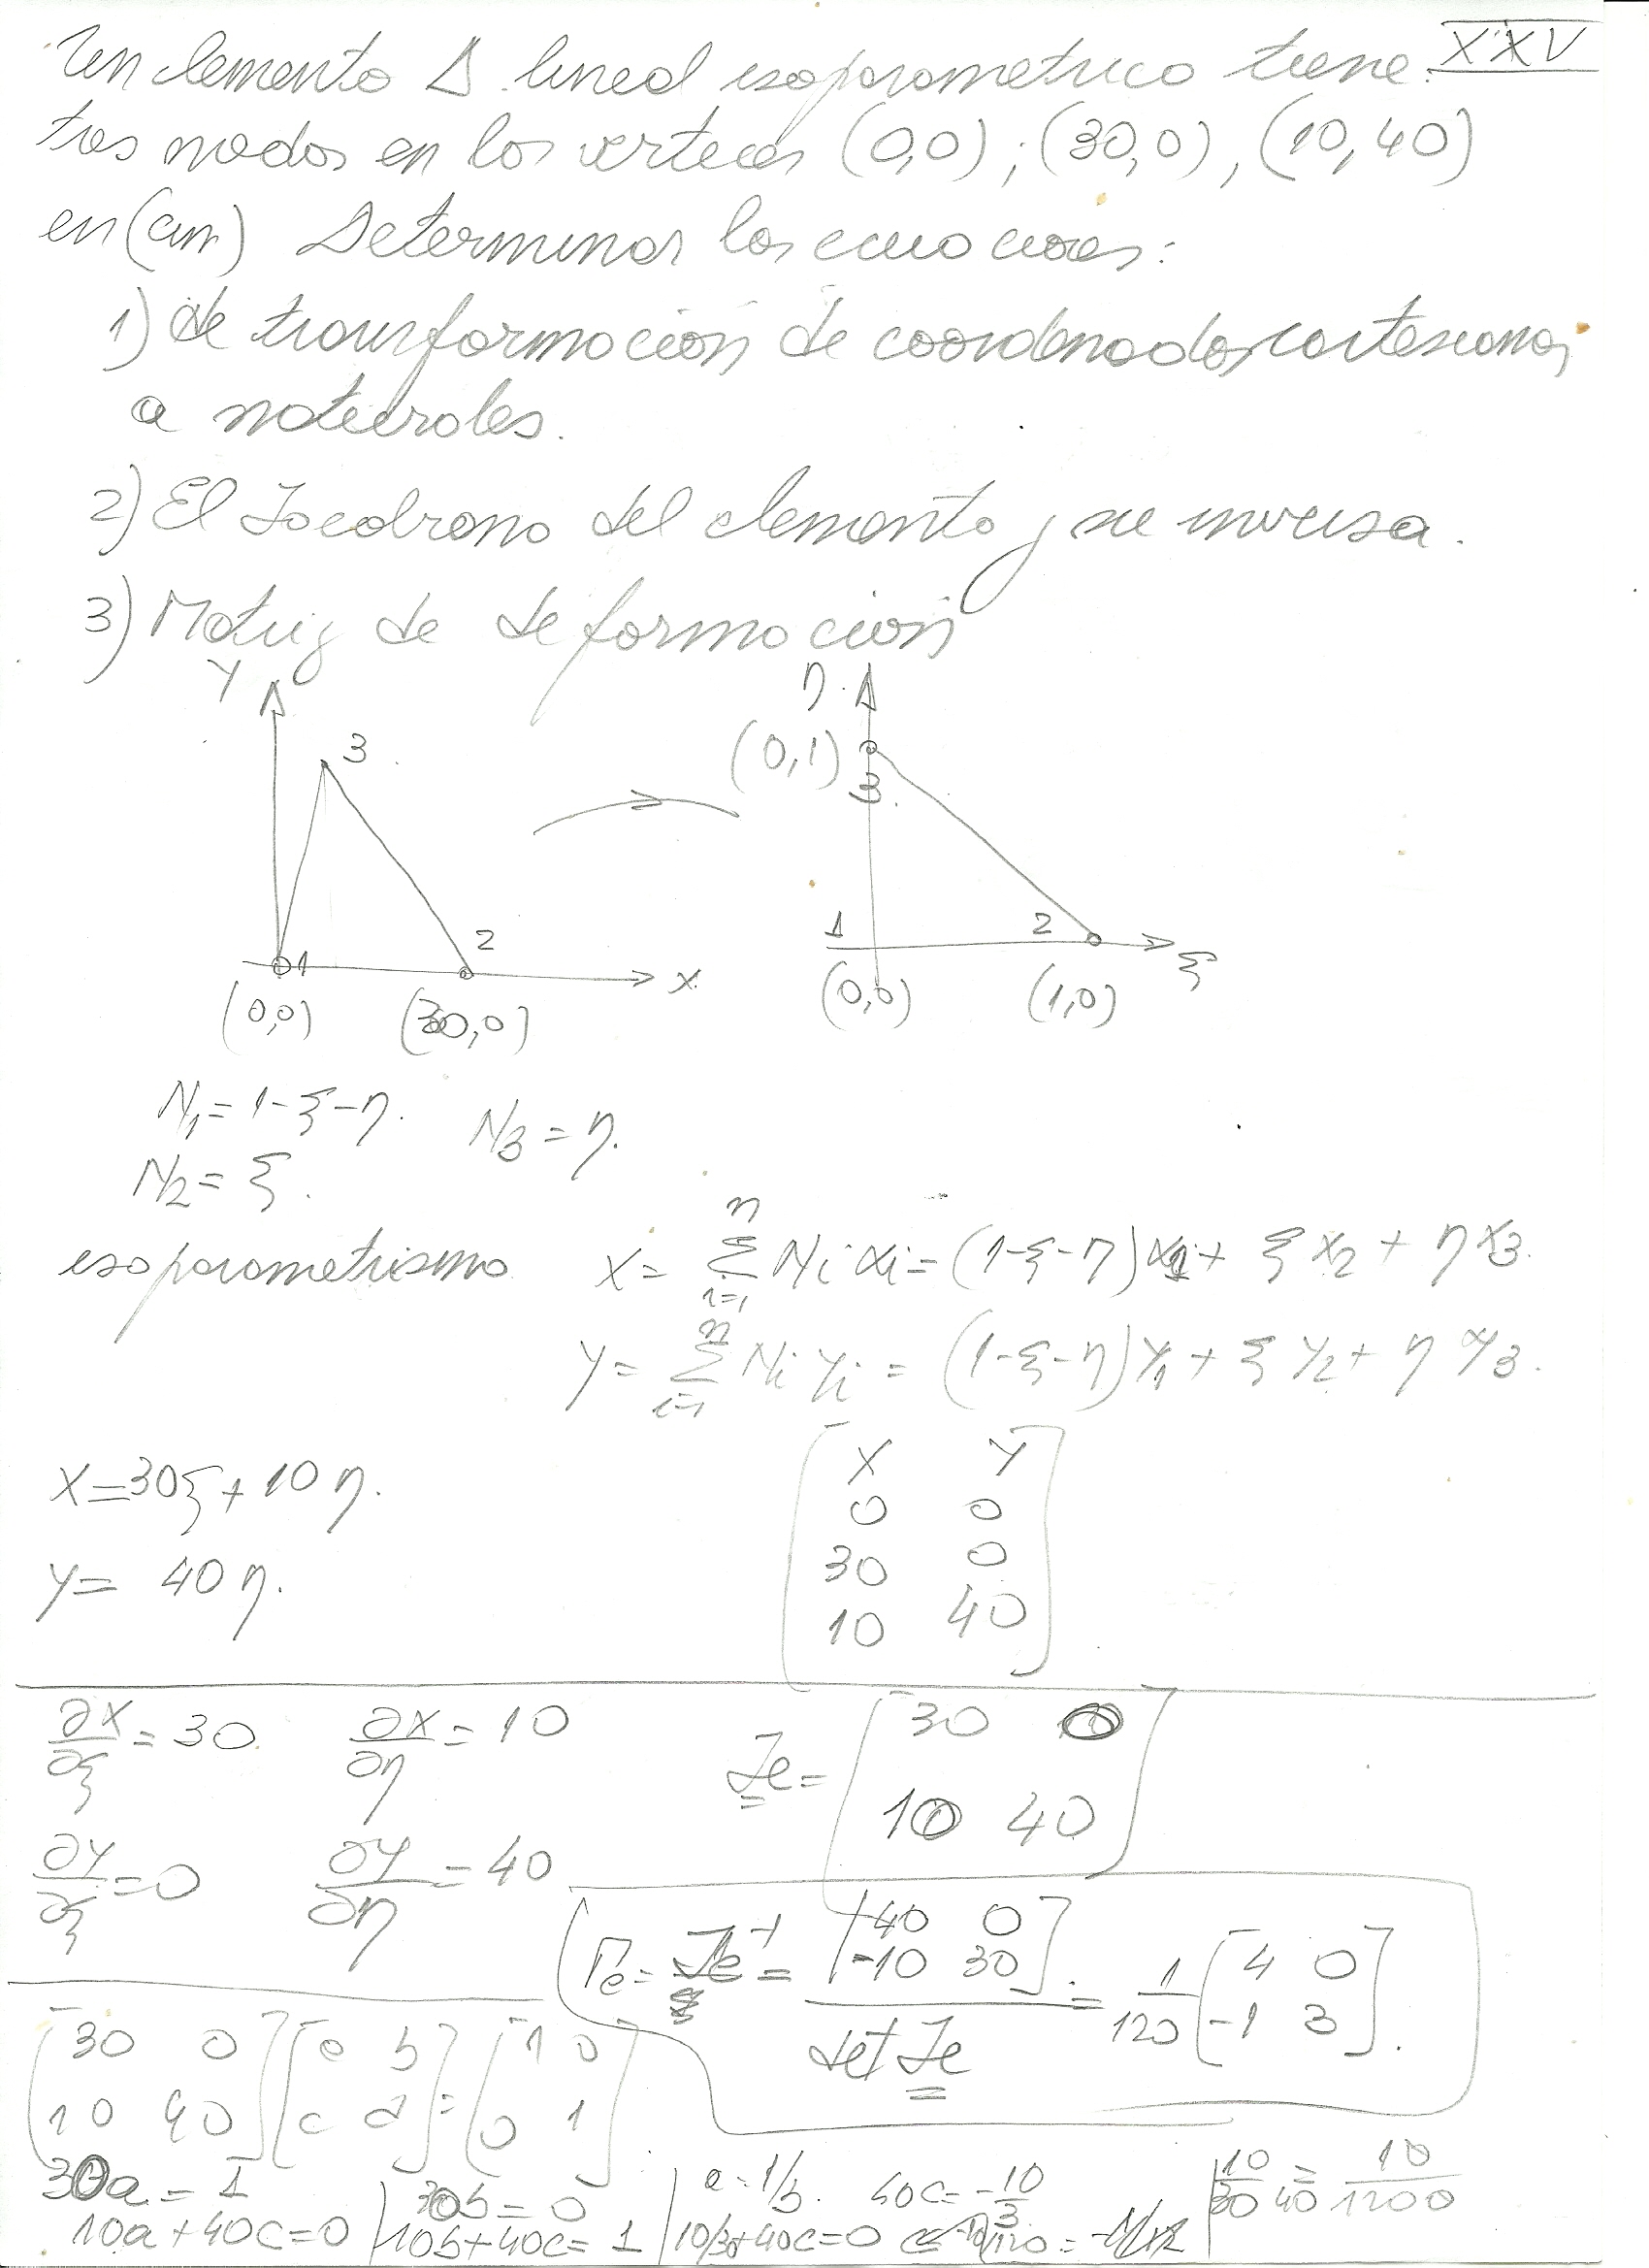 XXV
Un elemento Δ lineal isoparametrico tiene
tres nodos en los vertices (0,0); (30,0), (10,40)
en (cm) Determinar las ecuaciones:
1) de transformación de coordenadas cartesianas
a naturales.
2) El Jacobiano del elemento y su inversa.
3) Matriz de deformación
Y
3
1
2
X
(0,0) (30,0)
η
(0,1)
3
1
2
ξ
(0,0) (1,0)
N1 = 1-ξ-η. N3 = η.
N2 = ξ.
isoparametrismo X = Σ(i=1, n) Ni xi = (1-ξ-η)x1 + ξ x2 + η x3.
Y = Σ(i=1, n) Ni yi = (1-ξ-η)Y1 + ξ Y2 + η Y3.
X = 30ξ + 10η.
Y = 40η.
[X Y
0 0
30 0
10 40]
∂X/∂ξ = 30 ∂X/∂η = 10
∂Y/∂ξ = 0 ∂Y/∂η = 40
Je = [30 0
10 40]
Γe = Je^-1 = [40 0
-10 30] / det Je = 1/120 [4 0
-1 3].
[30 0
10 40] [a b
c d] = [1 0
0 1]
30a = 1
10a + 40c = 0
30b = 0
10b + 40c = 1
40c = -10/3
10/30 + 40c = 0
10/30 40 = 10/1200